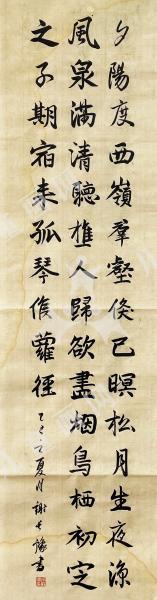 夕陽度西嶺羣壑倏已暝松月生夜涼
風泉滿清聽樵人歸欲盡烟鳥栖初定
之子期宿来孤琴候蘿徑
乙亥夏月謝
書